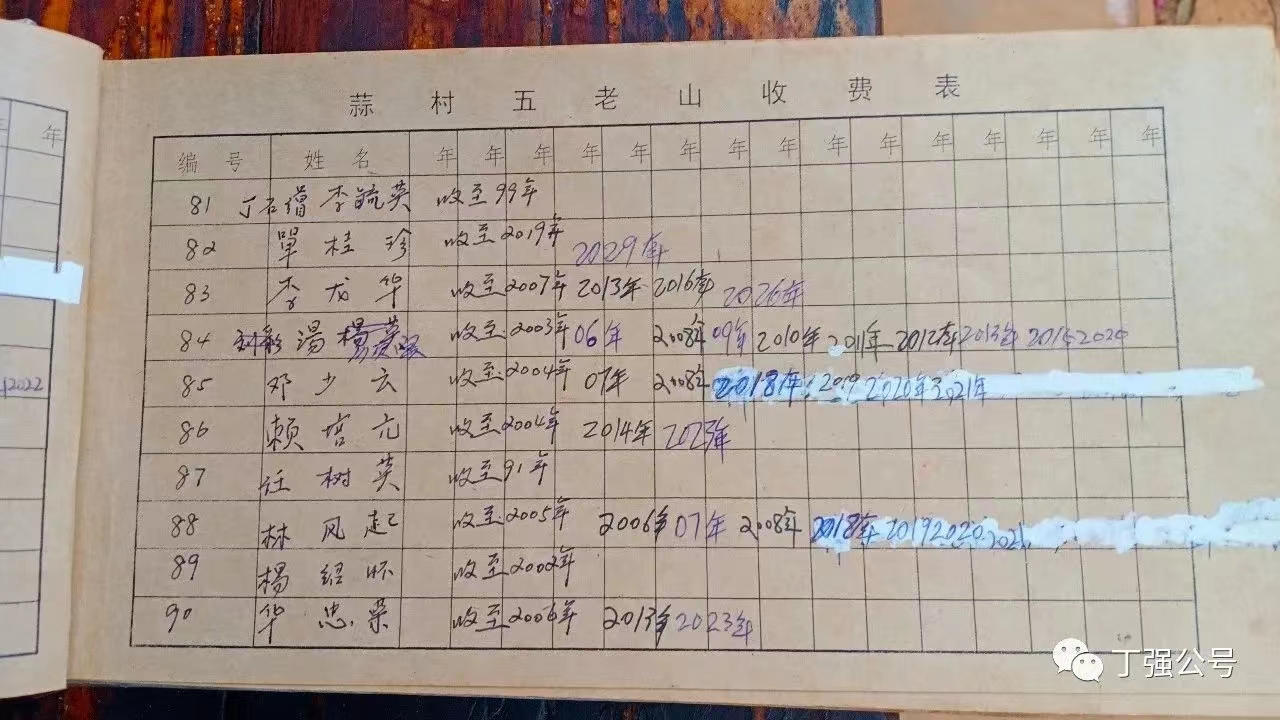 蒜村五老山收费表
年 年
编号 姓名 年 年 年 年 年 年 年 年 年 年 年 年 年 年 年
81 丁石增 李毓英 收至99年
82 單桂珍 收至2019年 2029年
83 李龙华 收至2007年 2013年 2016年 2026年
84 湯楊英 收至2003年 06年 2008年 09年 2010年 2011年 2012年 2013年 2015 2020
2022
85 邓少云 收至2004年 07年 2008年 2018年 2019 2020年 2021年
86 赖培元 收至2004年 2014年 2023年
87 任树英 收至91年
88 林风起 收至2005年 2006年 07年 2008年 2018年 2019 2020 2021
89 楊绍怀 收至2002年
90 华忠荣 收至2006年 2013年 2023年
丁强公号